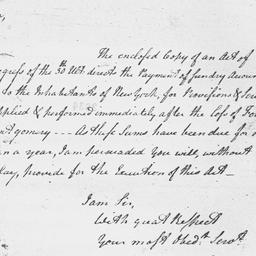 The enclosed Copy of an Act of
gress of the 30th Ult. directs the Payment of sundry Accoun
to the Inhabitants of New York, for Provisions & Ser
pplied & performed immediately after the Loss of For
ntgomery --- As these Sums have been due for
n a year, I am persuaded you will, without
lay, provide for the Execution of this Act--
I am Sir,
With great Respect
Your most Obedt. Servt.